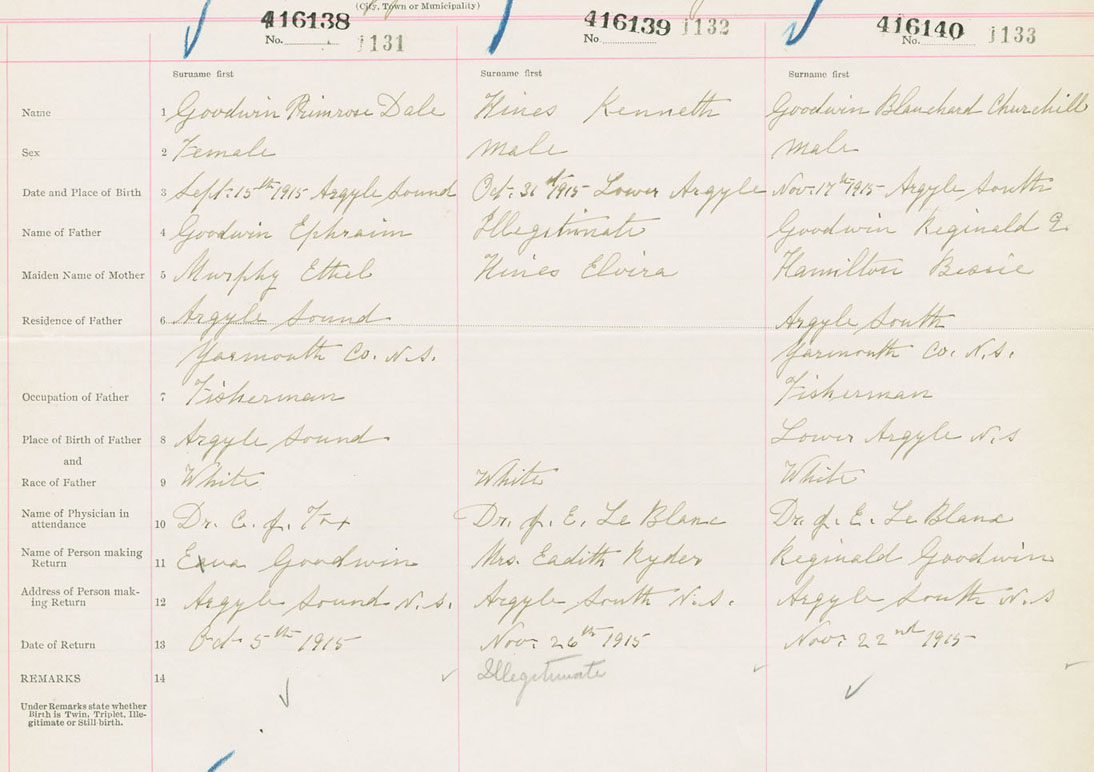 (City, Town or Municipality)
416138 416139 416140
No. 1131 No. 1132 No. 1133
Surname first Surname first Surname first
Name 1 Goodwin Primrose Dale Hines Kenneth Goodwin Blanchard Churchill
Sex 2 Female Male Male
Date and Place of Birth 3 Sept. 15th 1915 Argyle Sound Oct. 31st 1915 Lower Argyle Nov. 17th 1915 Argyle South
Name of Father 4 Goodwin Ephraim Illegitimate Goodwin Reginald E.
Maiden Name of Mother 5 Murphy Ethel Hines Elvira Hamilton Bessie
Residence of Father 6 Argyle Sound Argyle South
Yarmouth Co. N.S. Yarmouth Co. N.S.
Occupation of Father 7 Fisherman Fisherman
Place of Birth of Father 8 Argyle Sound Lower Argyle N.S
and
Race of Father 9 White White White
Name of Physician in
attendance 10 Dr. C. J. Fox Dr. J. E. Le Blanc Dr. J. E. Le Blanc
Name of Person making
Return 11 Goodwin Mrs. Eadith Ryder Reginald Goodwin
Address of Person mak-
ing Return 12 Argyle Sound N.S. Argyle South N.S. Argyle South N.S
Date of Return 13 Oct 5th 1915 Nov. 26th 1915 Nov. 22nd 1915
REMARKS 14 Illegitimate
Under Remarks state whether
Birth is Twin, Triplet, Ille-
gitimate or Still birth.